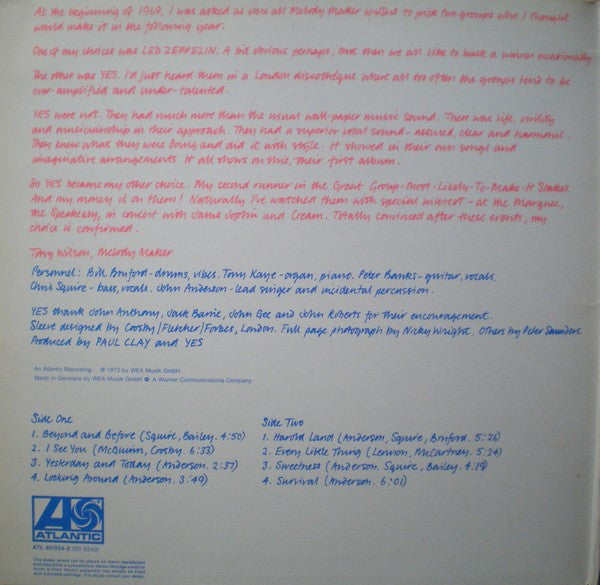 At the beginning of 1969, I was asked as were all Melody Maker writers to pick two groups who I thought
would make it in the following year.
One of my choices was LED ZEPPELIN. A bit obvious perhaps, but then we all like to back a winner occasionally.
The other was YES. I'd just heard them in a London discothèque where all too often the groups tend to be
over-amplified and under-talented.
YES were not. They had much more than the usual wall-paper music sound. There was life, virility
and musicianship in their approach. They had a superior vocal sound - assured, clear and harmonic.
They knew what they were doing and did it with style. It showed in their own songs and
imaginative arrangements. It all shows on this, their first album.
So YES became my other choice. My second runner in the Great Group-Most-Likely-To-Make-It Stakes
And my money is on them! Naturally I've watched them with special interest - at the Marquee,
the Speakeasy, in concert with Janis Joplin and Cream. Totally convinced after these events, my
choice is confirmed.
Tony Wilson, Melody Maker
Personnel: Bill Bruford - drums, vibes. Tony Kaye - organ, piano. Peter Banks - guitar, vocals.
Chris Squire - bass, vocals. John Anderson - lead singer and incidental percussion.
YES thank John Anthony, Jack Barrie, John Gee and John Roberts for their encouragement.
Sleeve designed by Crosby/Fletcher/Forbes, London. Full page photograph by Nicky Wright. Others by Peter Saunders.
Produced by PAUL CLAY and YES
An Atlantic Recording · ℗ 1972 by WEA Musik GmbH
Made in Germany by WEA Musik GmbH A Warner Communications Company.
Side One
1. Beyond and Before (Squire, Bailey. 4:50)
2. I See You (McGuinn, Crosby. 6:33)
3. Yesterday and Today (Anderson. 2:37)
4. Looking Around (Anderson. 3:49)
Side Two
1. Harold Land (Anderson, Squire, Bruford. 5:26)
2. Every Little Thing (Lennon, McCartney. 5:24)
3. Sweetness (Anderson. Squire, Bailey. 4:19)
4. Survival (Anderson. 6:01)
ATLANTIC
ATL 40 034-Z (SD 8243)
This stereo record can be played on mono reproducers
provided either a compatible or stereo cartridge wired for
mono is fitted. Recent equipment may already be fitted
with a suitable cartridge. If in doubt consult your dealer.